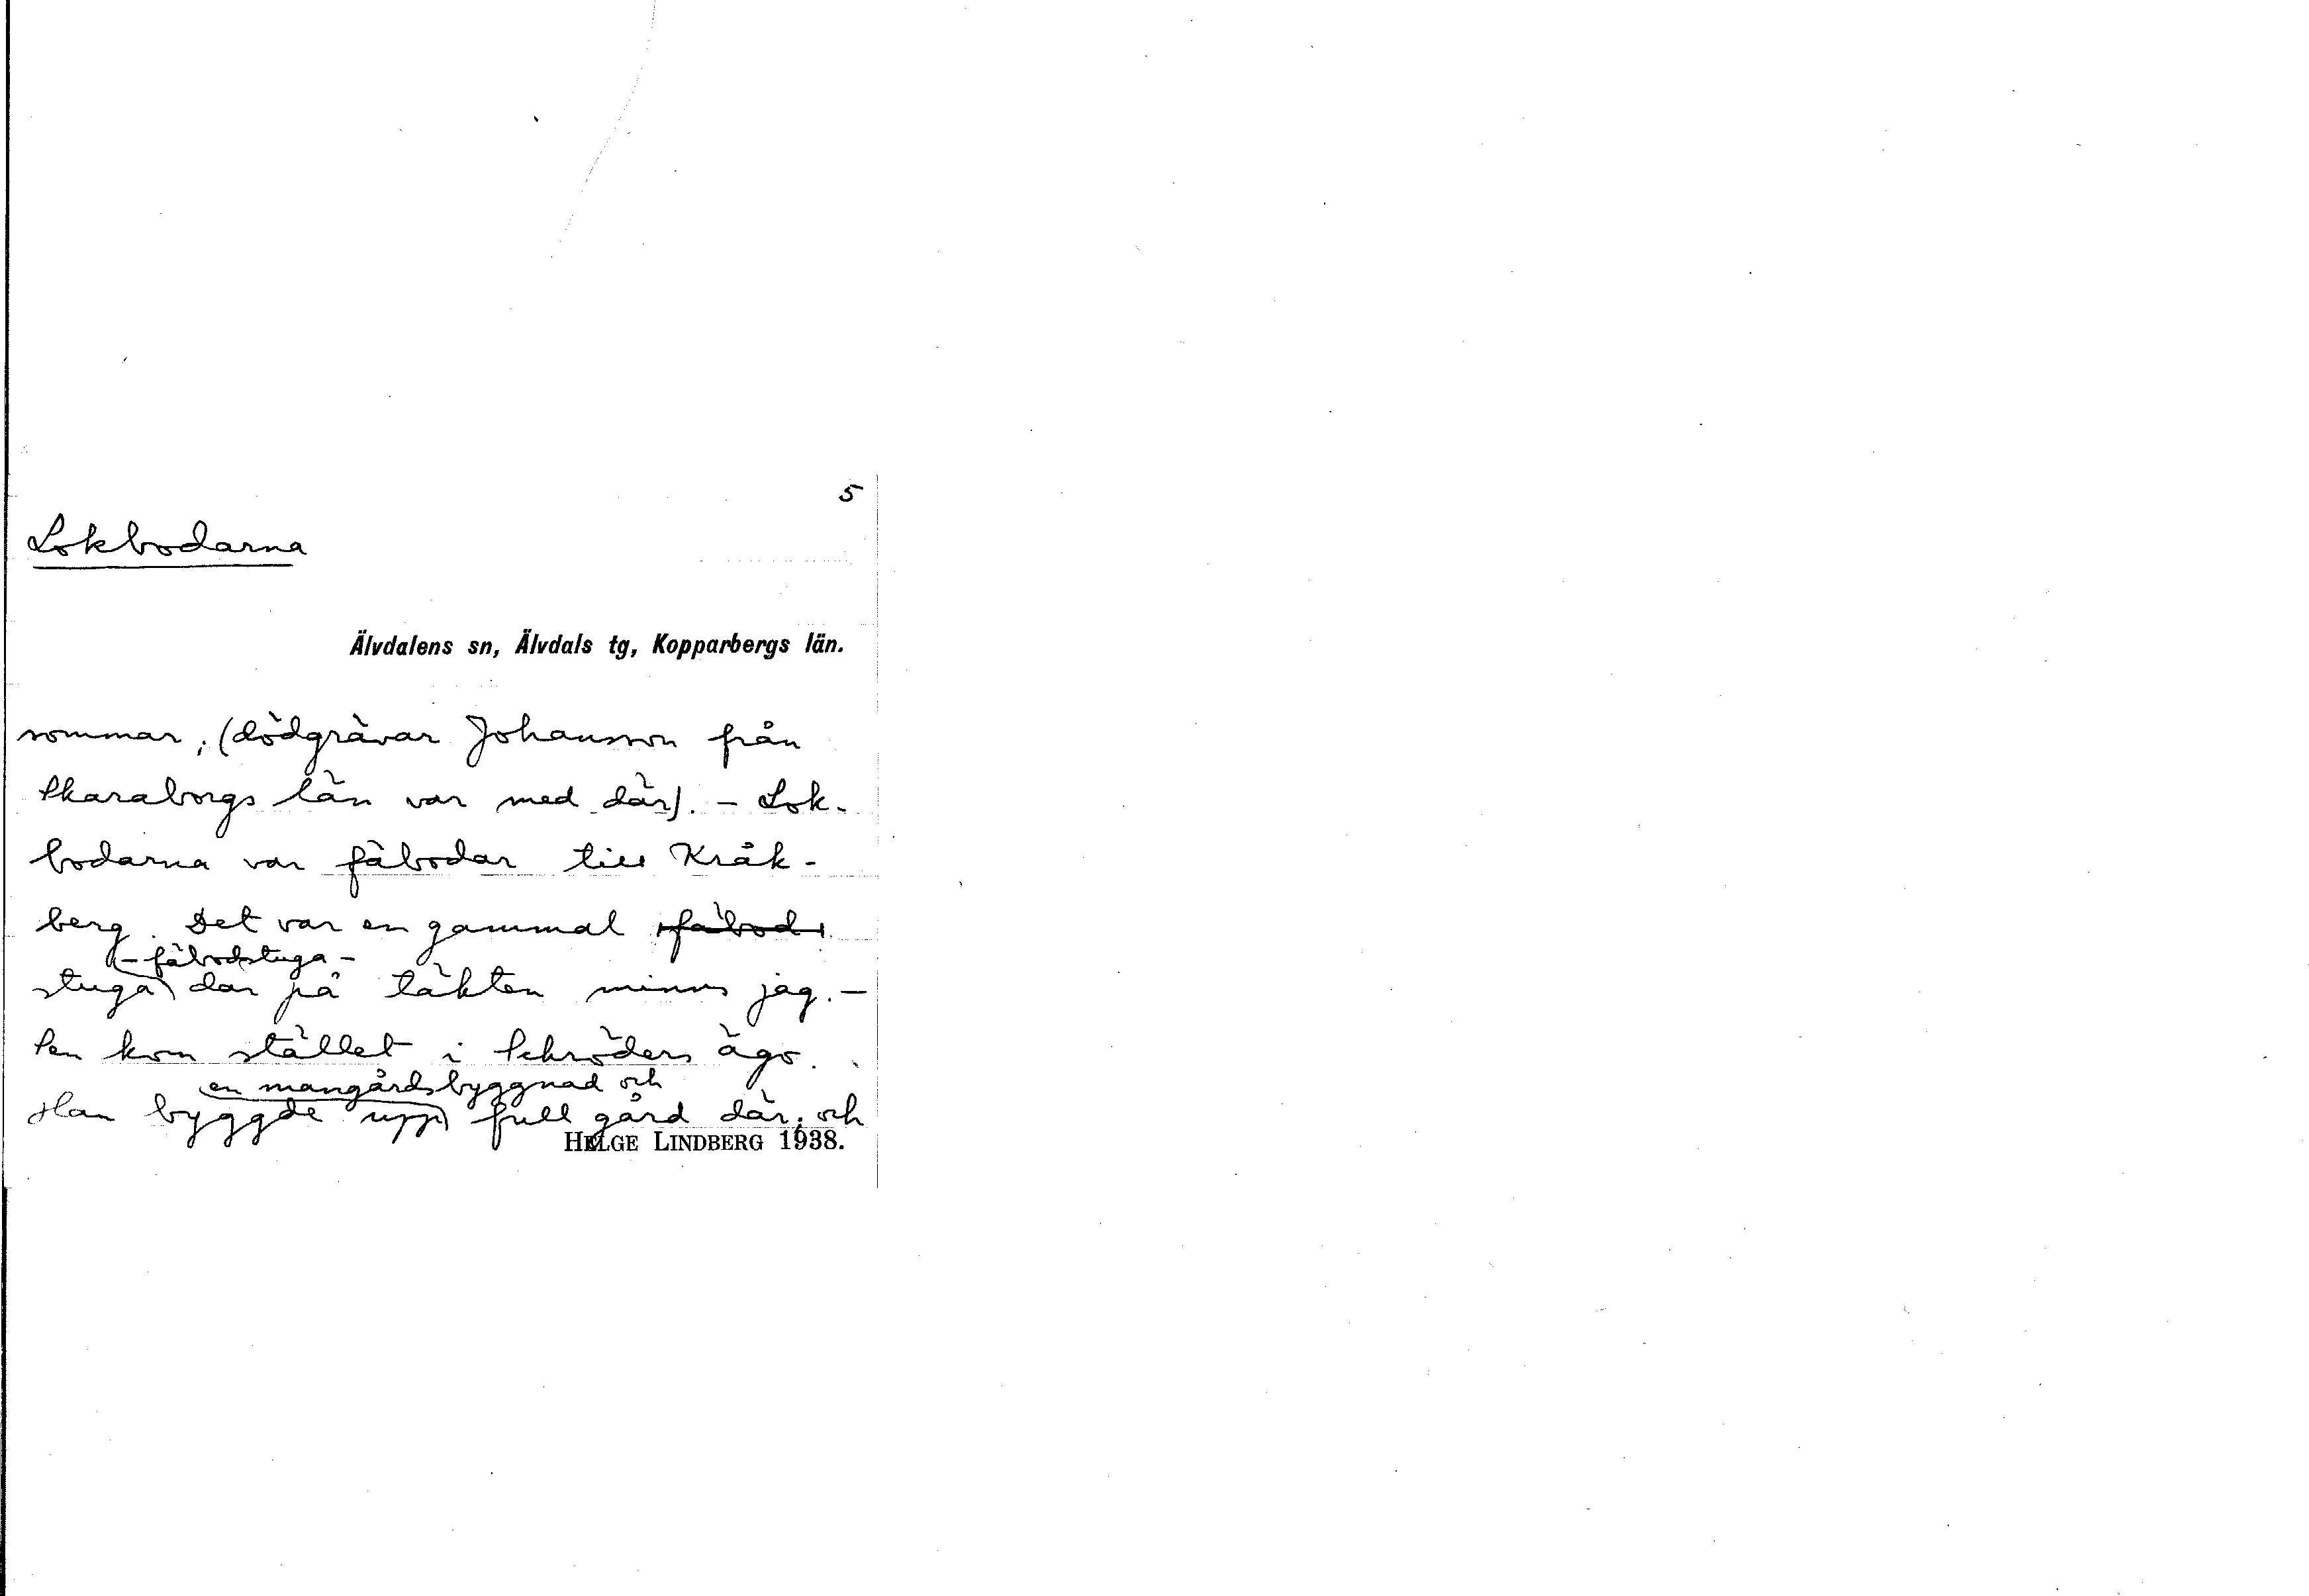 5
Lokbodarna
Älvdalens sn, Älvdals tg, Kopparbergs län.
sommar; (dödgrävar Johansson från
Skaraborgs län var med där). - Lok-
bodarna var fäbodar till Kråk-
berg. Det var en gammal fäbod
- fäbodstuga -
stuga där på täkten minns jag. -
Sen kom stället i Schröders ägo.
en mangårdsbyggnad och
Han byggde upp full gård där; och
HELGE LINDBERG 1938.